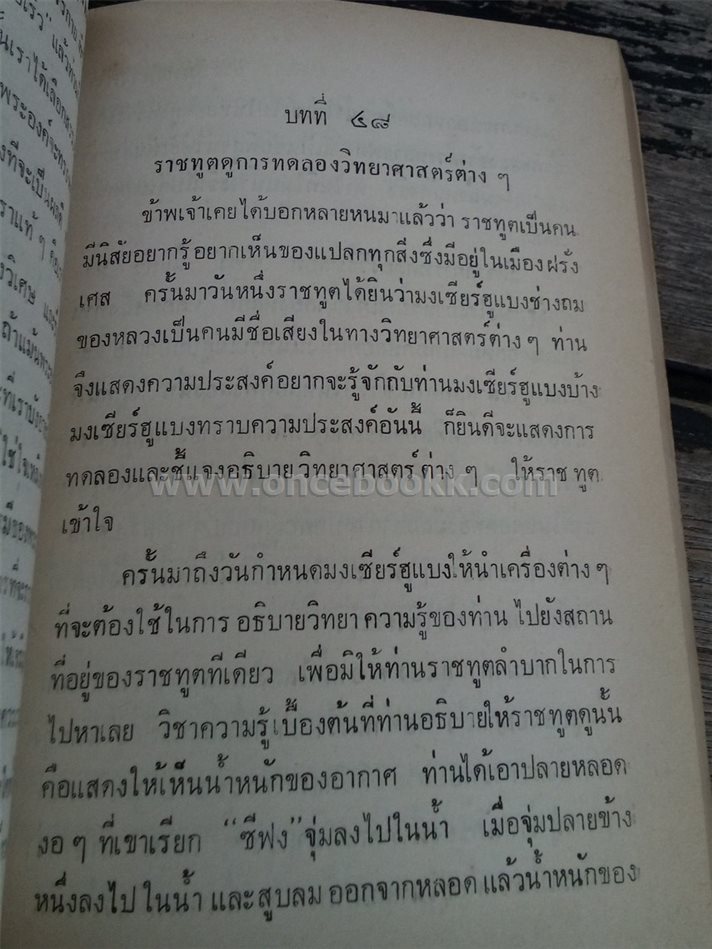 บทที่ ๔๘
ราชทูตดูการทดลองวิทยาศาสตร์ต่าง ๆ
ข้าพเจ้าเคยได้บอกหลายหนมาแล้วว่า ราชทูตเป็นคน
มีนิสัยอยากรู้อยากเห็นของแปลกทุกสิ่งซึ่งมีอยู่ในเมืองฝรั่ง
เศส ครั้นมาวันหนึ่งราชทูตได้ยินว่ามงเซียร์ฮูแบงช่างถม
ของหลวงเป็นคนมีชื่อเสียงในทางวิทยาศาสตร์ต่าง ๆ ท่าน
จึงแสดงความประสงค์อยากจะรู้จักกับท่านมงเซียร์ฮูแบงบ้าง
มงเซียร์ฮูแบงทราบความประสงค์อันนี้ ก็ยินดีจะแสดงการ
ทดลองและชี้แจงอธิบาย วิทยาศาสตร์ ต่าง ๆ ให้ราช ทูต
www.oncebookk.com
เข้าใจ
ครั้นมาถึงวันกำหนดมงเซียร์ฮูแบงให้นำเครื่องต่าง ๆ
ที่จะต้องใช้ในการ อธิบายวิทยา ความรู้ของท่าน ไปยังสถาน
ที่อยู่ของราชทูตทีเดียว เพื่อมิให้ท่านราชทูตลำบากในการ
ไปหาเลย วิชาความรู้เบื้องต้นที่ท่านอธิบายให้ราชทูตดูนั้น
คือแสดงให้เห็นน้ำหนักของอากาศ ท่านได้เอาปลายหลอด
งอ ๆ ที่เขาเรียก “ซีฟง” จุ่มลงไปในน้ำ เมื่อจุ่มปลายข้าง
หนึ่งลงไป ในน้ำ และสูบลม ออกจากหลอด แล้วน้ำหนักของ